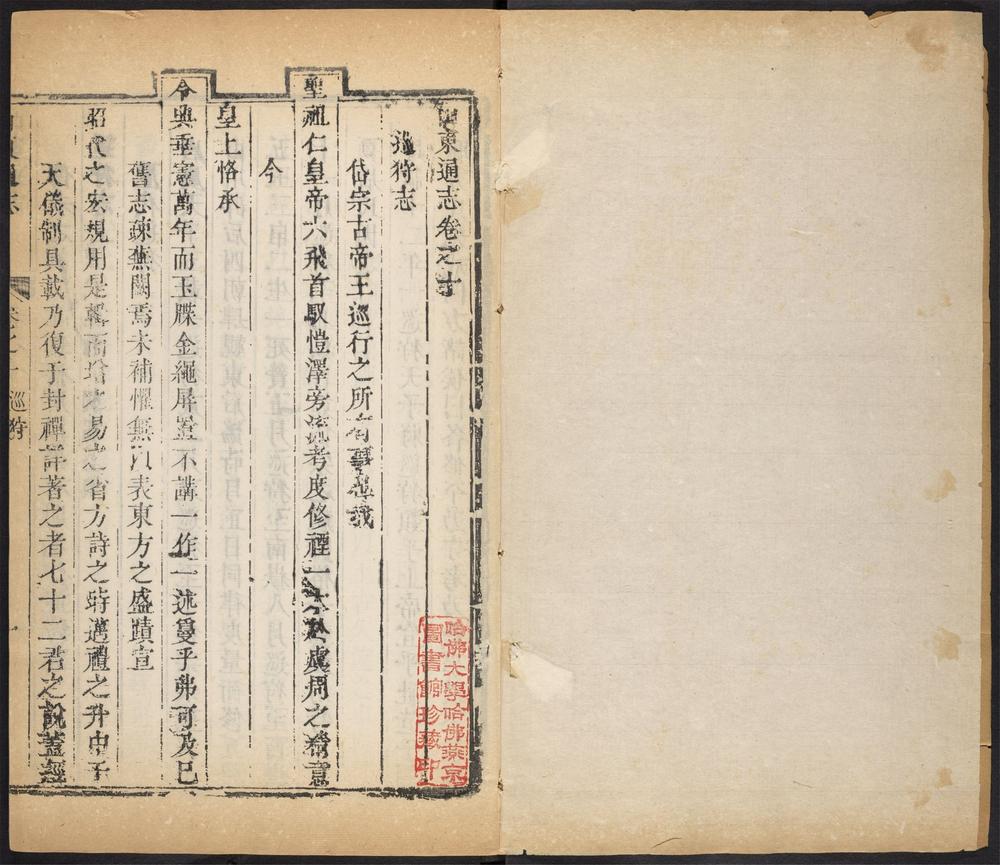 山東通志卷之十
巡狩志
岱宗古帝王巡行之所
聖祖仁皇帝六飛首馭愷澤旁流考度修禮一本於虞周之精意
今
皇上恪承
令典垂憲萬年而玉牒金繩屏置不講一作一述敻乎弗可及已
舊志疎蕪闕焉未補懼無以表東方之盛蹟宣
昭代之宏規用是輯而增之易之省方詩之時邁禮之升中于
天儀制具載乃復于封禪詳著之者七十二君之說蓋經
卷之十 巡狩
哈佛大學哈佛燕京
圖書館珍藏印